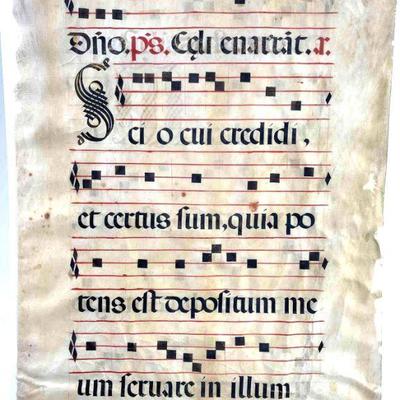 Dño. ps. Cęli enarrãt. x.
Sci o cui credidi,
et certus sum, quia po
tens est depositum me
um seruare in illum